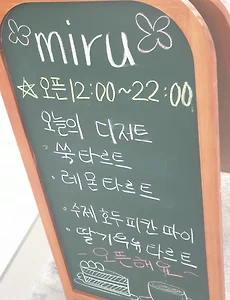 miru
☆오픈 12:00~22:00
오늘의 디저트
· 쑥타르트
· 레몬타르트
· 수제 호두피칸 파이
· 딸기우유타르트
~오픈해요~